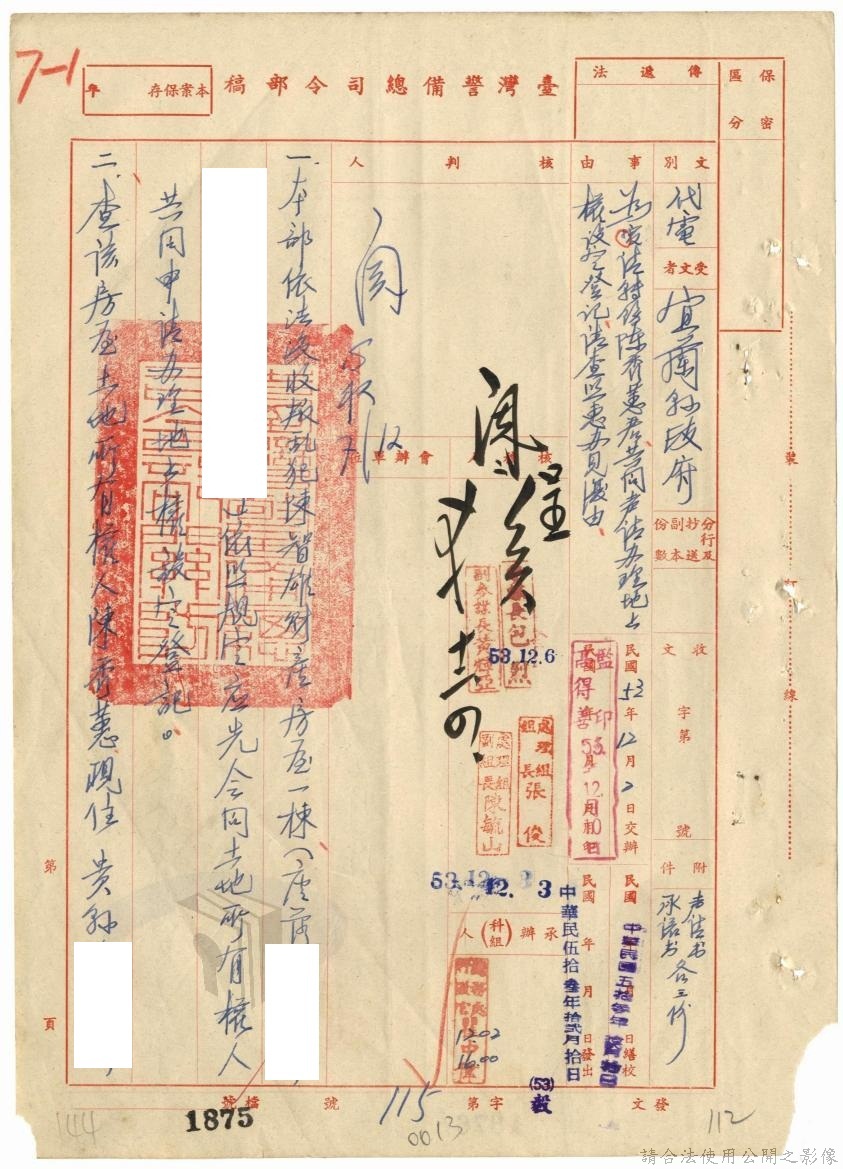 7-1
保密區分
傳遞法
臺灣警備總司令部稿
本案保存 年
文別
代電
受文者
宜蘭縣政府
分行及抄送副本份數
事由
為請轉飭陳秀蕙君共同声請办理地上
權設定登記請查照惠办見復由
核判人
會辦單位
核稿人
收文 字第 號
附件
声請书
承諾书 各三份
民國53年12月2日交辦
監印
高得善
53年12月10日
民國 年 月 日繕校
民國 年 月 日發出
中華民國五拾叁年
中華民伍拾叁年拾貳月拾日
53.12.6
副參謀長
處理組組長張俊
處理組副組長陳毓山
53.12.3
12.3
承辦(科組)人
12.02
16.00
7/12
一、本部依法沒收叛亂犯陳智雄財產房屋一棟(座落
依照規定應先会同土地所有權人
共同申請办理地上權設定登記。
二、查該房屋土地所有權人陳秀蕙現住 貴縣
裝 訂 線
第 頁
發文
(53)
字第
115
號
檔號
1875
144
0013
112
請合法使用公開之影像